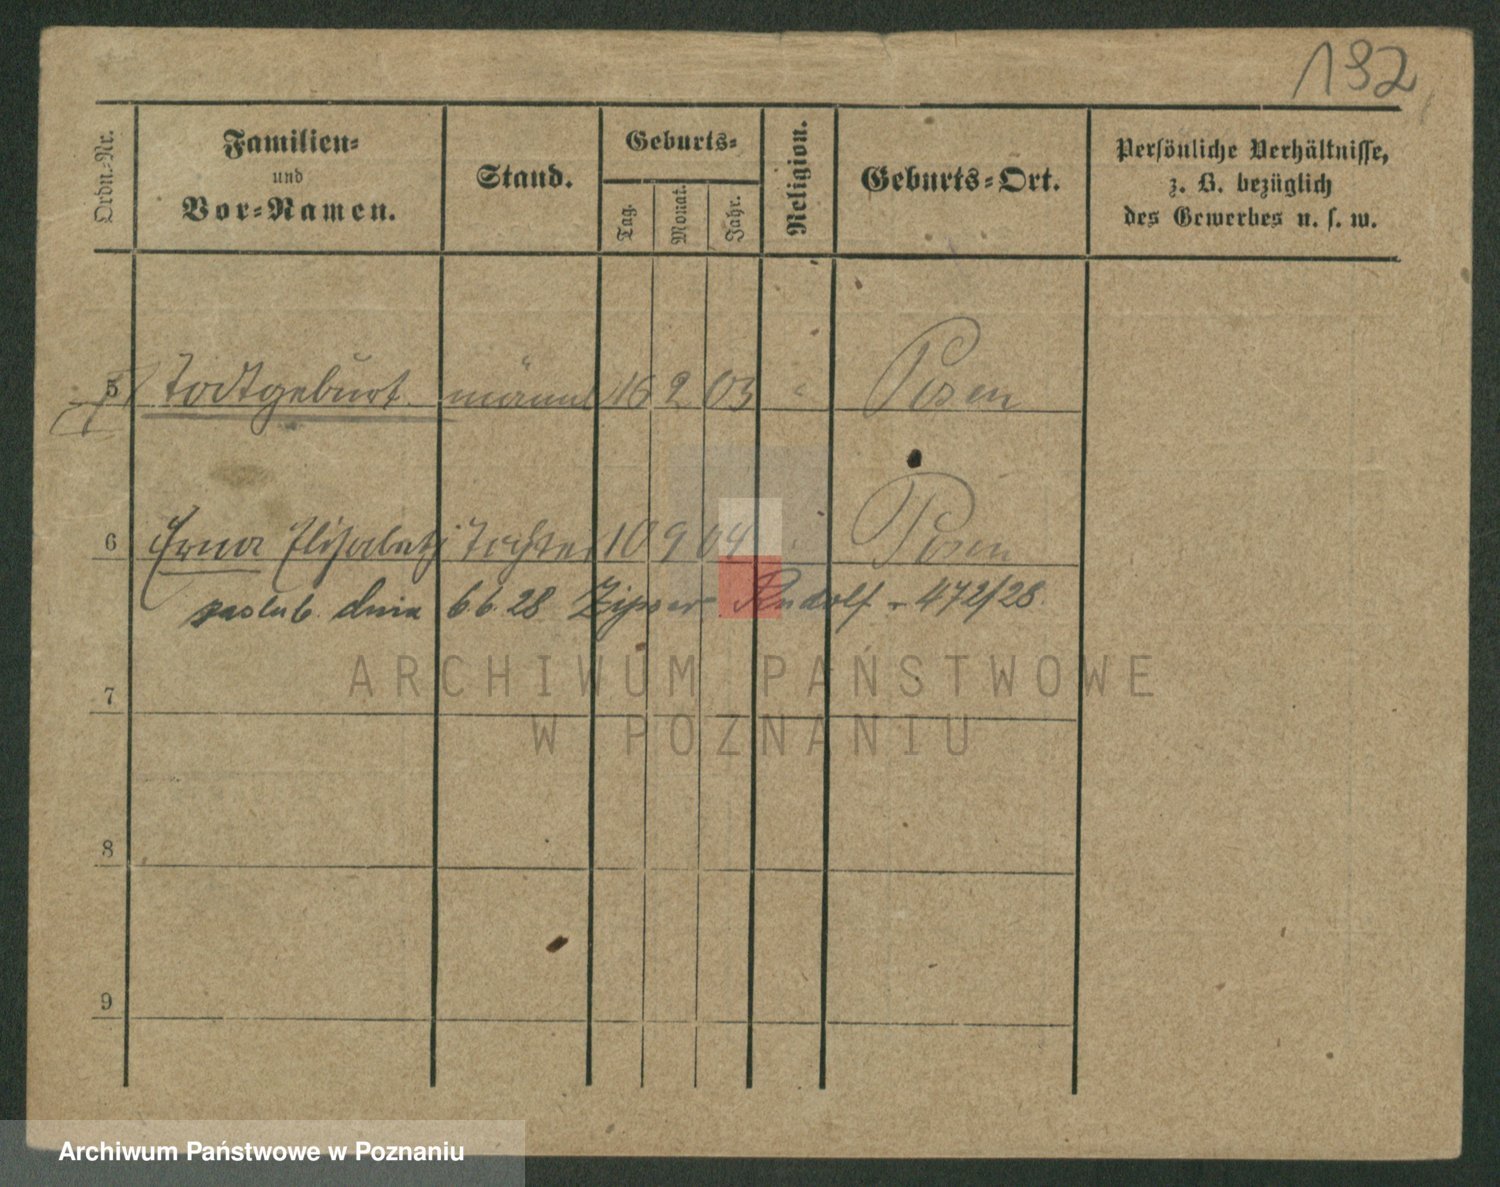 132
Ordn.-Nr. Familien- und Vor-Namen. Stand. Geburts- Tag. Monat. Jahr. Religion. Geburts-Ort. Persönliche Verhältnisse, z. B. bezüglich des Gewerbes u. s. w.
5 Todtgeburt männl 16 2 03 " Posen
6 Erna Elisabeth Tochter 10 9 04 " Posen
zaślub. dnia 6 6. 28 Zipser Rudolf - 472/28.
7
8
9
ARCHIWUM PAŃSTWOWE
W POZNANIU
Archiwum Państwowe w Poznaniu